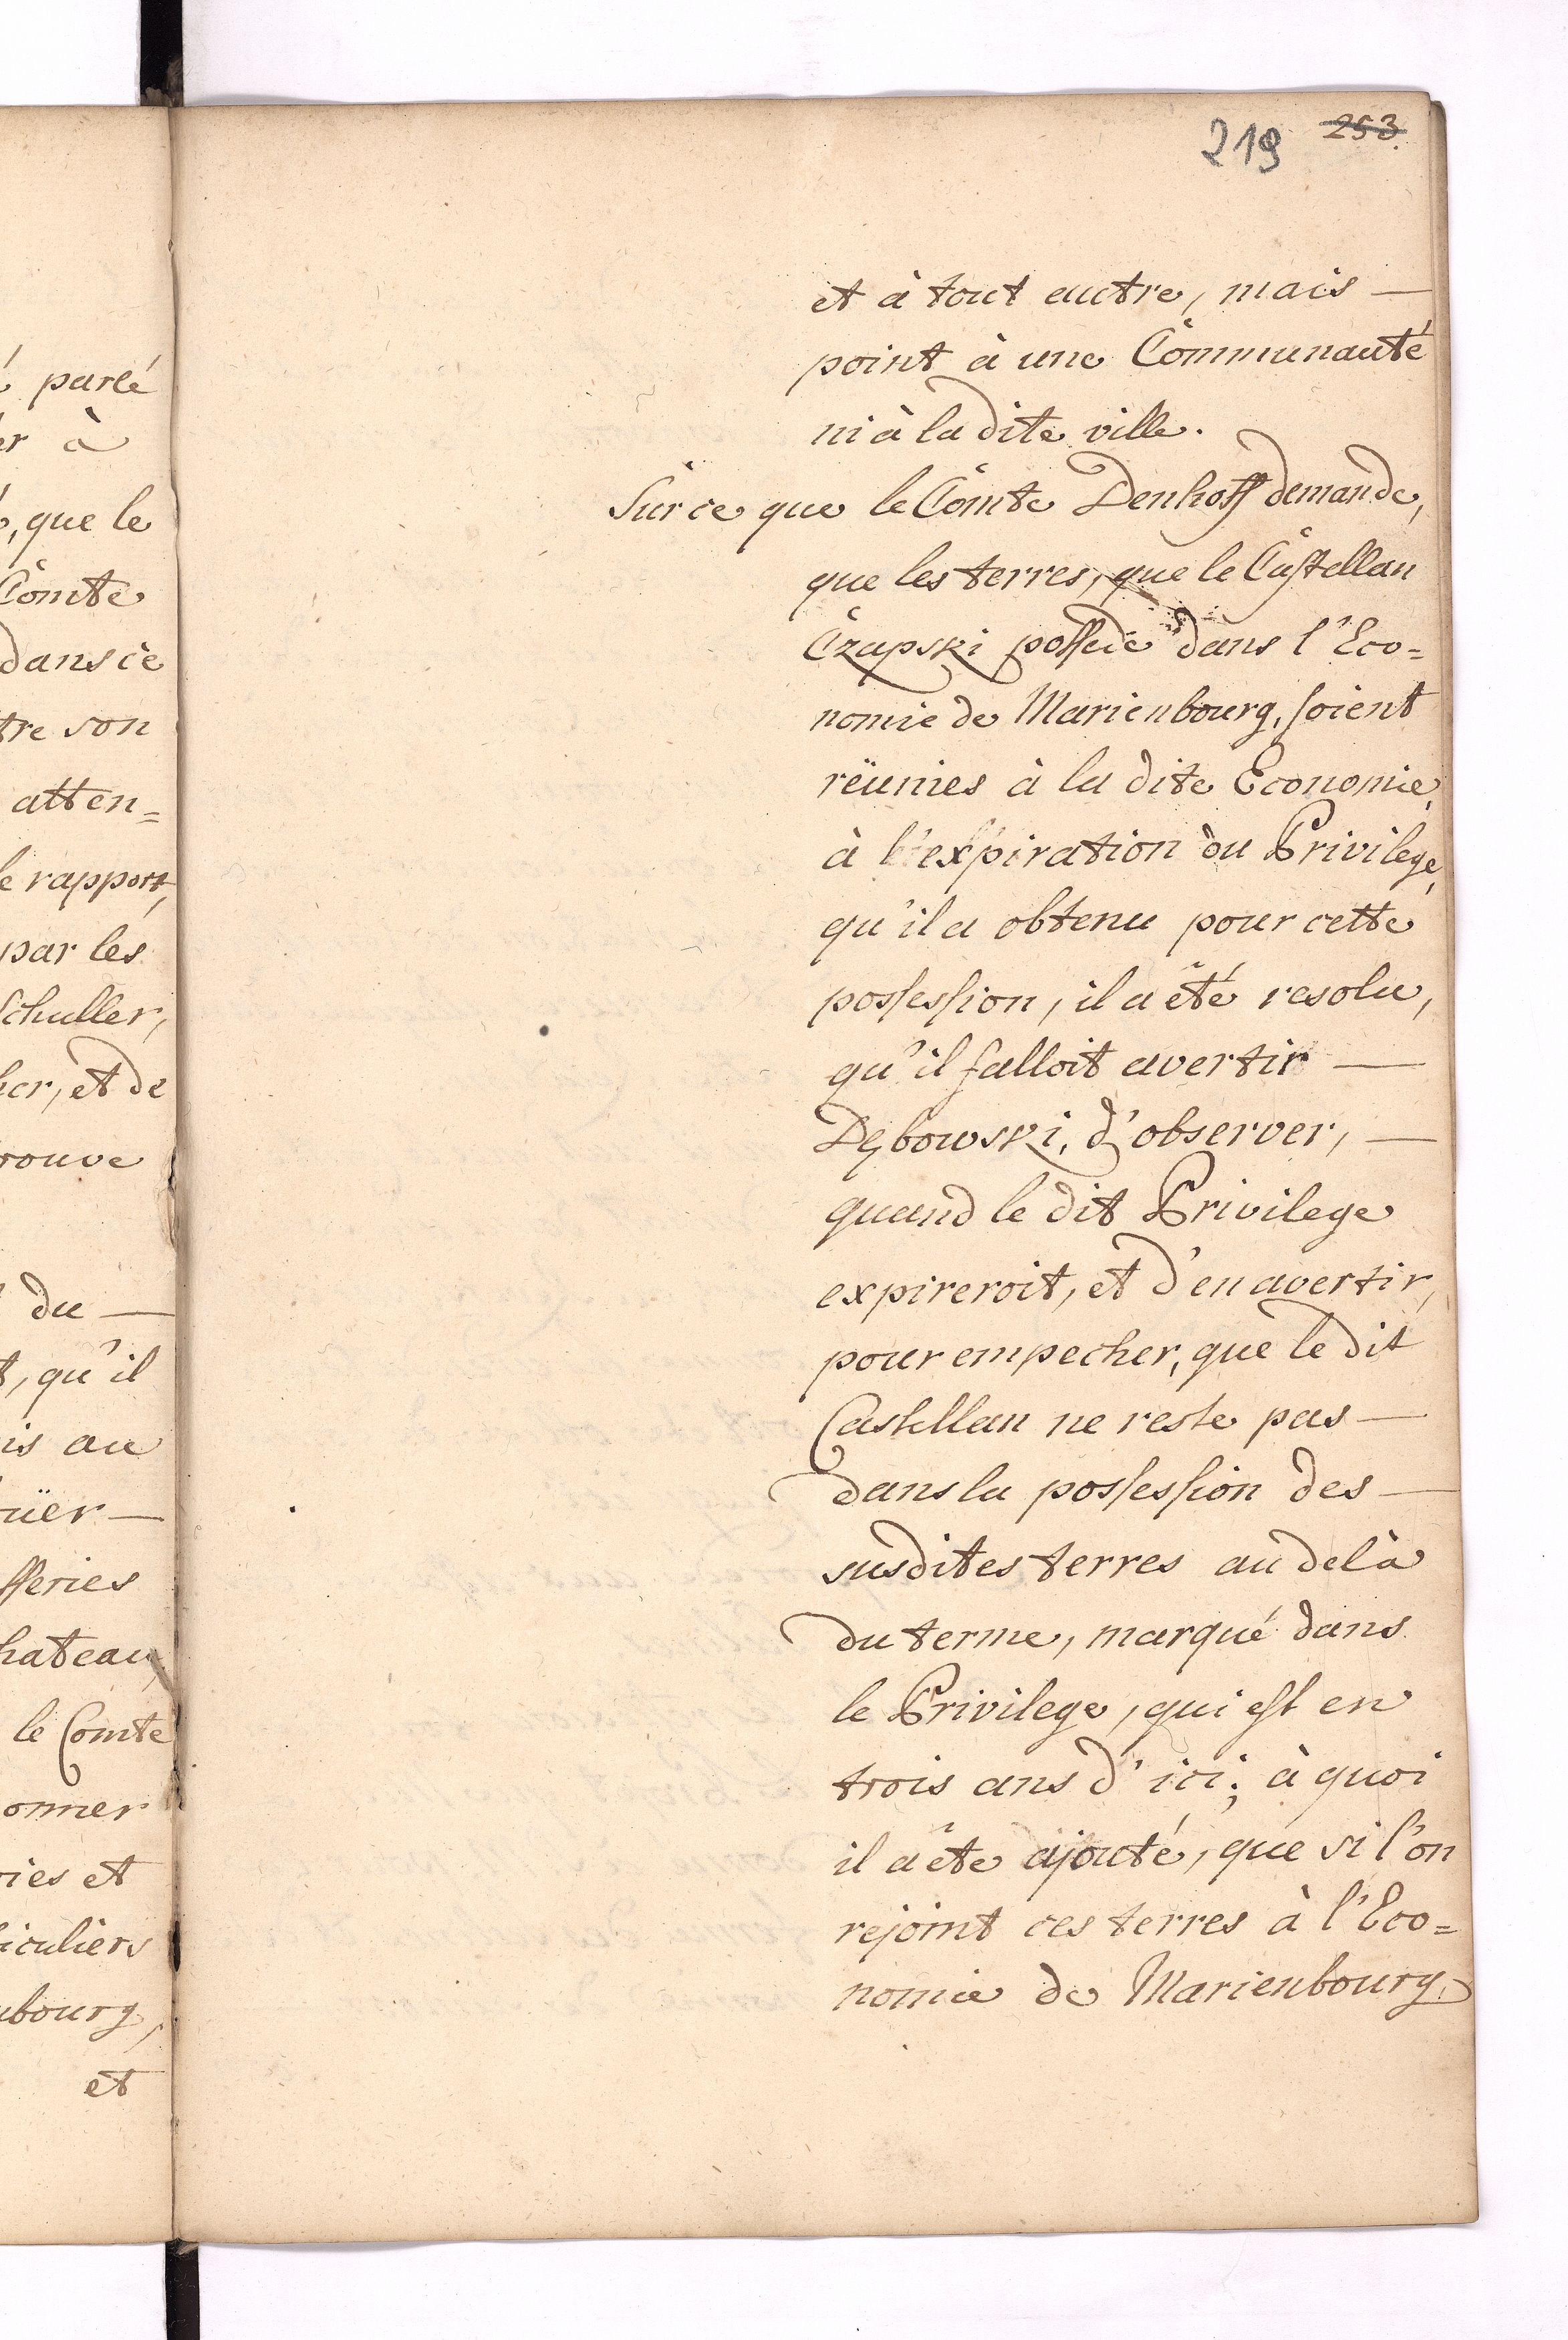 é parlé
er à
, que le
Comte
dans ce
tre son
atten=
le rapport,
par les
Schuller,
her, et de
rouve
du —
t, qu'il
is au
üer —
fferies
hateau,
le Comte
onner
ries et
ticuliers
nbourg,
et
219 253.
et à tout autre, mais —
point à une Communauté
ni à la dite ville.
Sur ce que le Comte Denhoff demande,
que les terres, que le Castellan
Czapski possede dans l'Eco=
nomie de Marienbourg, soient
réunies à la dite Economie,
à l'expiration du Privilege,
qu'il a obtenu pour cette
possession, il a été resolu,
qu'il falloit avertir —
Dębowski, d'observer, —
quand le dit Privilege
expireroit, et d'en avertir,
pour empecher, que le dit
Castellan ne reste pas —
dans la possession des —
susdites terres au delà
du terme, marqué dans
le Privilege, qui est en
trois ans d'ici; à quoi
il a été ajouté, que si l'on
rejoint ces terres à l'Eco=
nomie de Marienbourg